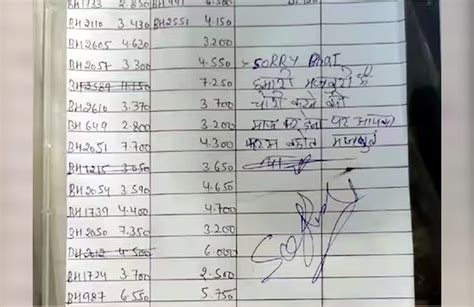 BH1733 2.850 BH991 6.300
BH2110 3.430 BH2551 4.150
BH2605 4.620 3.200
BH2057 3.300 4.550 SORRY BHAI
BH2589 11.150 7.250 हमारी मजबूरी है
BH2610 3.370 3.700 चोरी करने की
BH649 2.800 3.200 माफ कर देना पर आपका
BH2051 7.700 4.300 मजबूत
BH1215 3.050 3.650
BH2054 3.590 4.650
BH1739 4.400 4.700
BH2050 7.350 3.200
BH2612 4.500 6.000
BH1724 3.700 2.500
BH987 6.550 5.750
SORRY